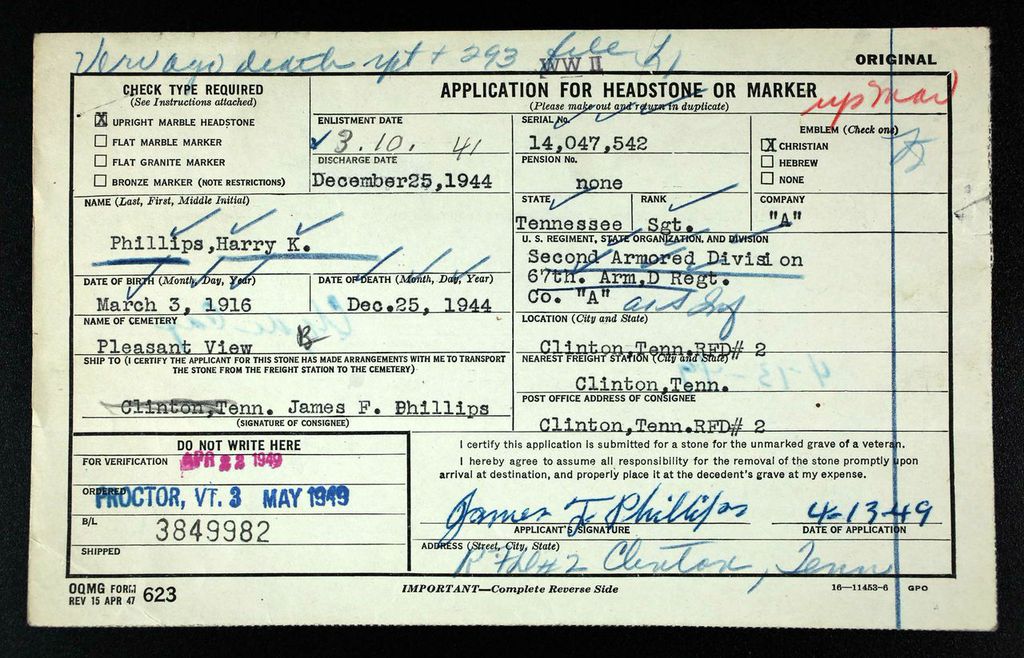 death rpt + 293 file
WW II
ORIGINAL
CHECK TYPE REQUIRED
(See Instructions attached)
X UPRIGHT MARBLE HEADSTONE
FLAT MARBLE MARKER
FLAT GRANITE MARKER
BRONZE MARKER (NOTE RESTRICTIONS)
APPLICATION FOR HEADSTONE OR MARKER
(Please make out and return in duplicate)
ENLISTMENT DATE
3. 10. 41
DISCHARGE DATE
December25,1944
SERIAL No.
14,047,542
PENSION No.
none
EMBLEM (Check one)
X CHRISTIAN
HEBREW
NONE
STATE
Tennessee
RANK
Sgt.
COMPANY
"A"
NAME (Last, First, Middle Initial)
Phillips,Harry K.
U. S. REGIMENT, STATE ORGANIZATION, AND DIVISION
Second Armored Division
67th. Arm.D Regt.
Co. "A"
DATE OF BIRTH (Month, Day, Year)
March 3, 1916
DATE OF DEATH (Month, Day, Year)
Dec.25, 1944
NAME OF CEMETERY
Pleasant View
LOCATION (City and State)
Clinton,Tenn.RFD# 2
SHIP TO (I CERTIFY THE APPLICANT FOR THIS STONE HAS MADE ARRANGEMENTS WITH ME TO TRANSPORT
THE STONE FROM THE FREIGHT STATION TO THE CEMETERY)
Clinton,Tenn. James F. Phillips
(SIGNATURE OF CONSIGNEE)
NEAREST FREIGHT STATION (City and State)
Clinton,Tenn.
POST OFFICE ADDRESS OF CONSIGNEE
Clinton,Tenn.RFD# 2
DO NOT WRITE HERE
FOR VERIFICATION APR 22 1949
ORDERED
PROCTOR, VT. 3 MAY 1949
B/L
3849982
SHIPPED
I certify this application is submitted for a stone for the unmarked grave of a veteran.
I hereby agree to assume all responsibility for the removal of the stone promptly upon
arrival at destination, and properly place it at the decedent's grave at my expense.
James F Phillips 4-13-49
APPLICANT'S SIGNATURE DATE OF APPLICATION
ADDRESS (Street, City, State)
Rfd#2 Clinton, Tenn
OQMG FORM
REV 15 APR 47 623
IMPORTANT—Complete Reverse Side
16—11453-6 GPO